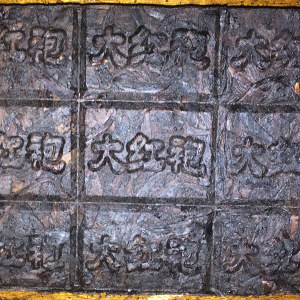 红袍 大红袍 大红
红袍 大红袍 大红
红袍 大红袍 大红